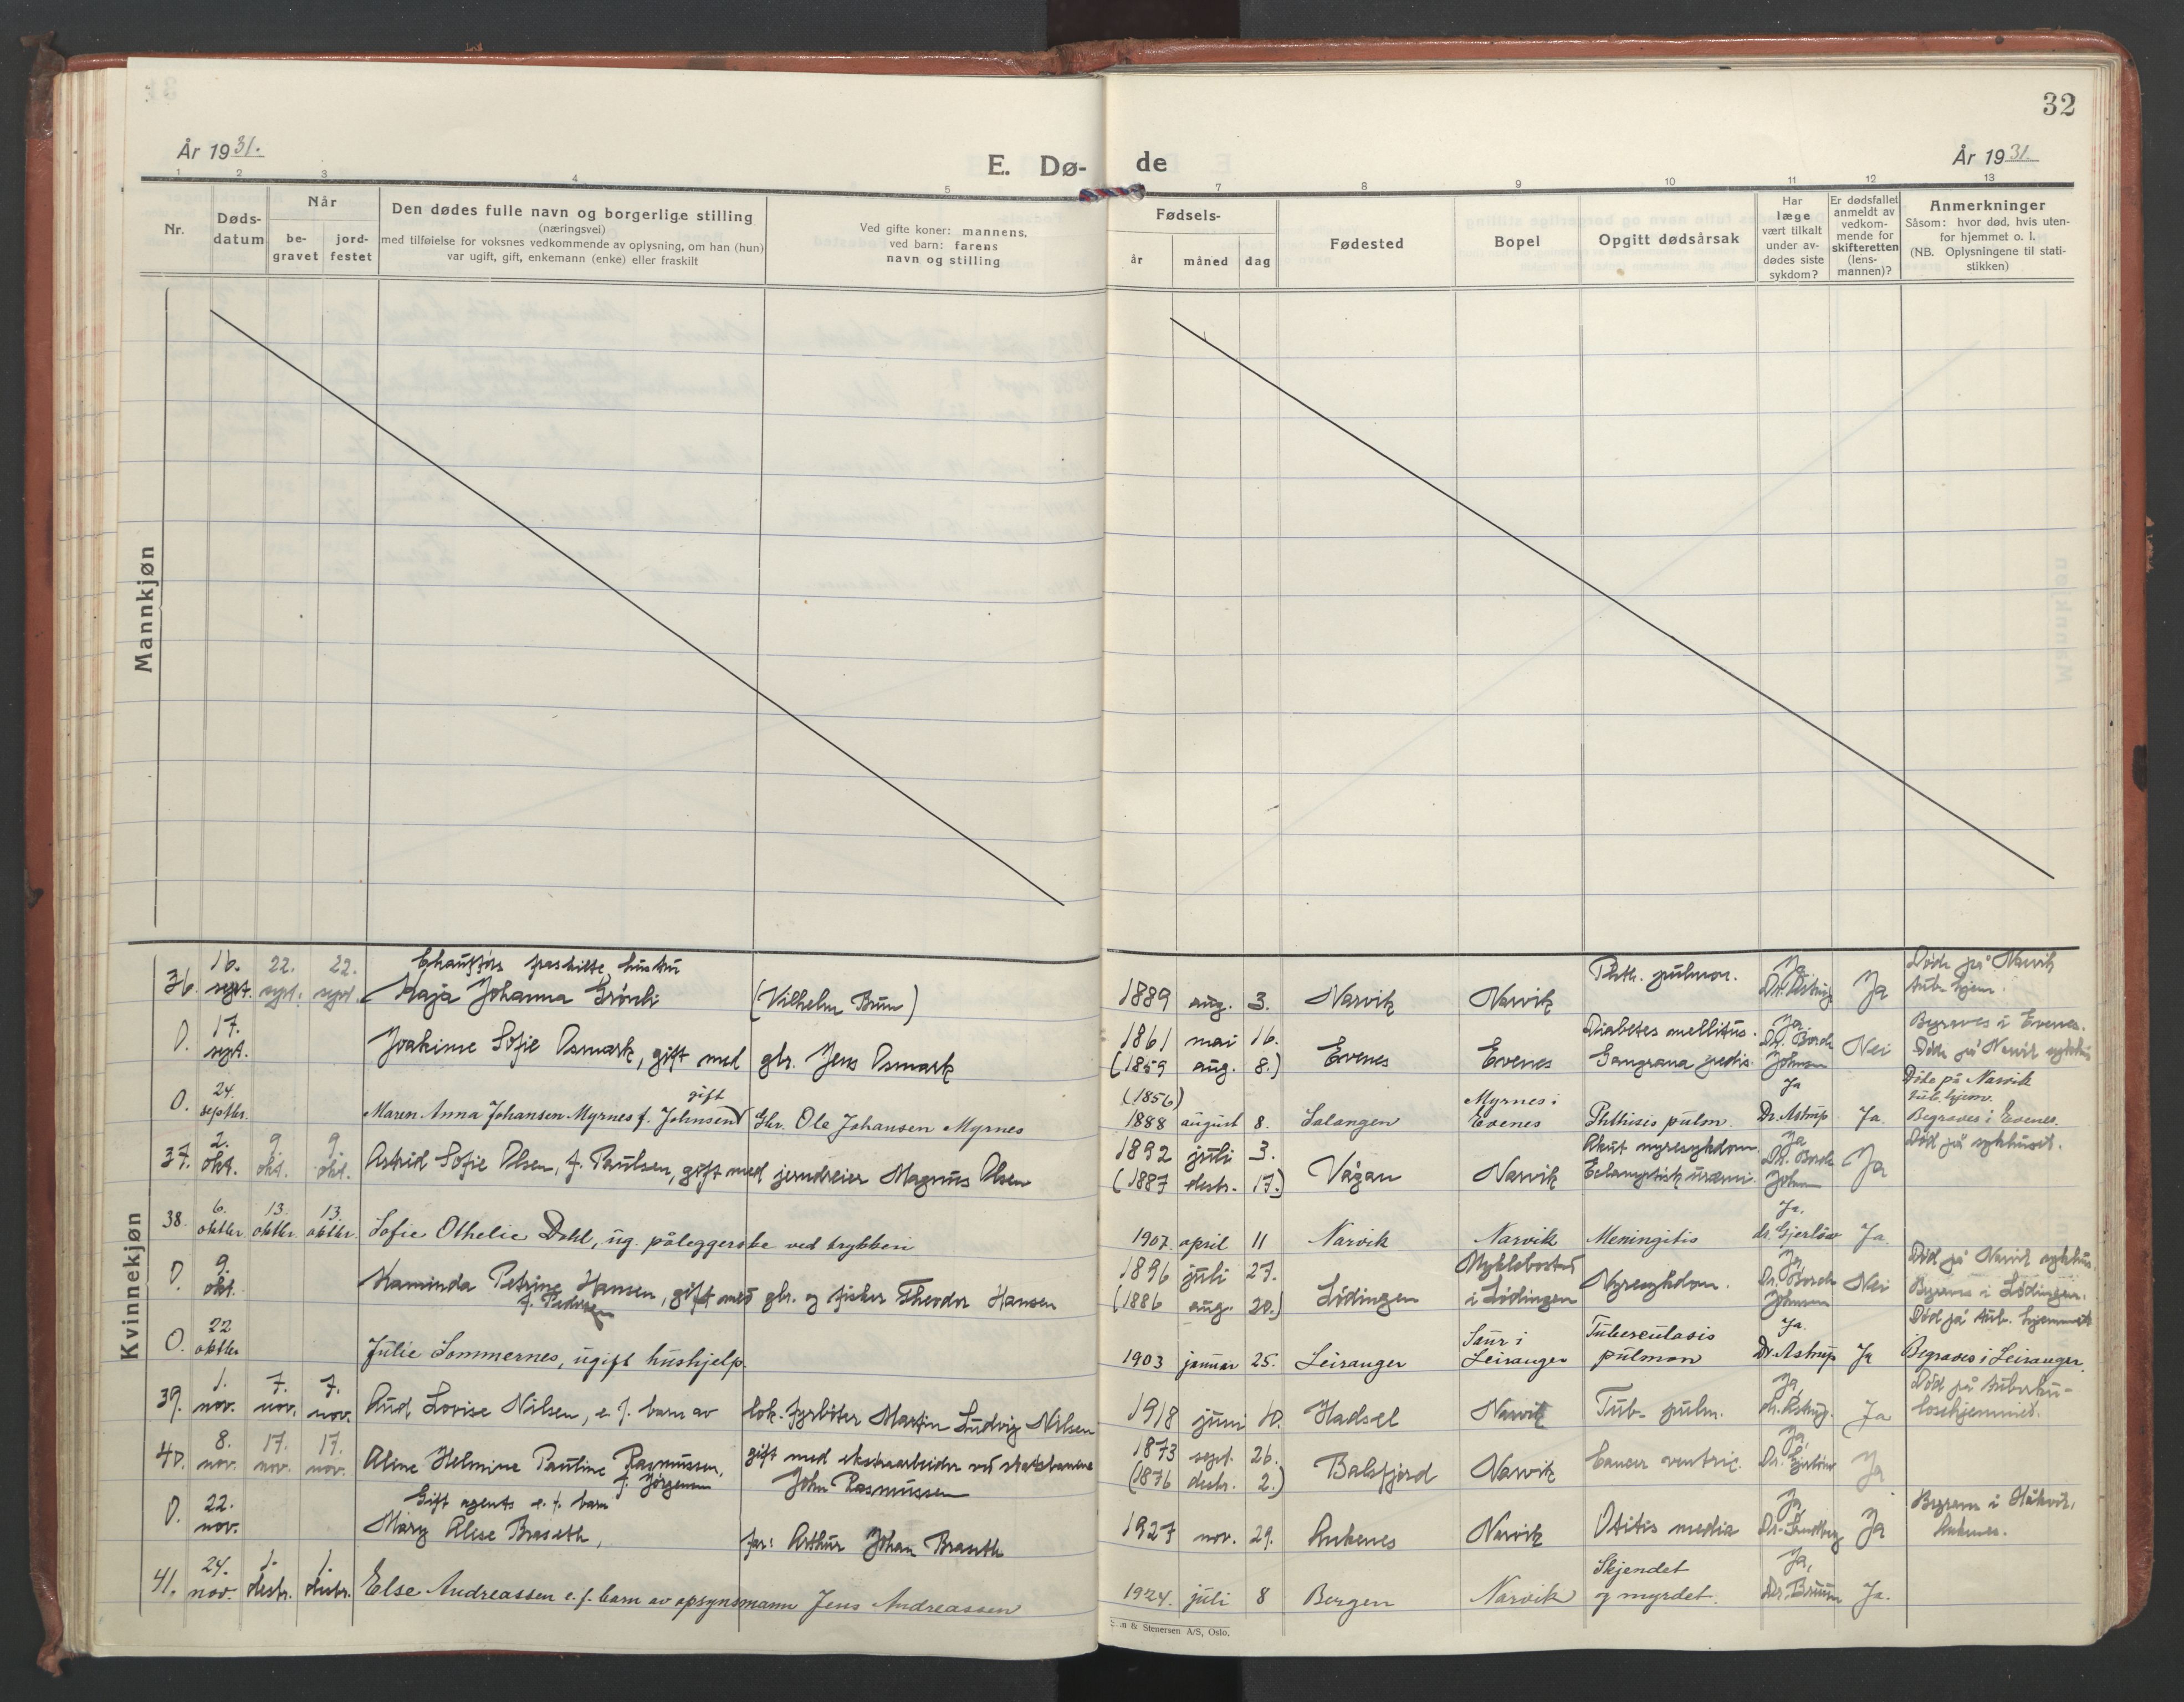 32
År 1931.
E. Dø- de
År 1931.
1 2 3 4 5 7 8 9 10 11 12 13
Nr.
Døds-
datum
Når
be-
gravet
jord-
festet
Den dødes fulle navn og borgerlige stilling
(næringsvei)
med tilføielse for voksnes vedkommende av oplysning, om han (hun)
var ugift, gift, enkemann (enke) eller fraskilt
Ved gifte koner: mannens,
ved barn: farens
navn og stilling
Fødsels-
år måned dag
Fødested
Bopel
Opgitt dødsårsak
Har
læge
vært tilkalt
under av-
dødes siste
sykdom?
Er dødsfallet
anmeldt av
vedkom-
mende for
skifteretten
(lens-
mannen)?
Anmerkninger
Såsom: hvor død, hvis uten-
for hjemmet o. l.
(NB. Oplysningene til stati-
stikken)
Mannkjøn
Kvinnekjøn
36. 16. sept. 22. sept. 22. sept. Chaufførs fraskilte hustru
Kaja Johanna Grönli (Vilhelm Bruun) 1889 aug. 3. Narvik Narvik Phth. pulmon. Ja Dr. Astrup Ja Döde på Narvik
tub. hjem.
0. 17. sept. Joakime Sofie Osmark, gift med gbr. Jens Osmark 1861 mai 16. (1859 aug. 8.) Evenes Evenes Diabetes mellitus.
Gangrana pedis. Ja, Dr. Borch Johnsen Nei Begraves i Evenes.
Döde på Narvik sykehus
0. 24. septbr. Maren Anna Johansen Myrnes f. Johnsen gift Gbr. Ole Johansen Myrnes (1856) 1888 august 8. Salangen Myrnes i
Evenes Phthisis pulm. Ja Dr. Astrup Ja. Döde på Narvik
tub. hjem.
Begraves i Evenes.
37. 2. okt. 9. okt. 9. okt. Astrid Sofie Olsen, f. Paulsen, gift med jerndreier Magnus Olsen 1892 juli 3. (1887 desbr. 17.) Vågan Narvik Akut nyresykdom
Eclamptisk uræmi. Ja Dr. Borch Johnsen Ja Död på sykehuset.
38. 6. oktbr. 13. oktbr. 13. oktbr. Sofie Othelie Dahl, ug. påleggerske ved trykkeri 1907 april 11 Narvik Narvik Meningitis Ja, dr. Gjerløw Ja.
0. 9. okt. Kaminda Petrine Hansen, gift med gbr. og fisker Theodor Hansen
f. Pedersen 1896 juli 27. (1886 aug. 20.) Lödingen Myklebostad
i Lödingen Nyresykdom. Ja, Dr. Borch Johnsen Nei Död på Narvik sykehus.
Begraves i Lödingen.
0. 22 oktbr Julie Sommernes, ugift hushjelp. 1903 januar 25. Leiranger Saur i
Leiranger Tuberculosis
pulmon Ja. Dr. Astrup Ja Död på tub. hjemmet
Begraves i Leiranger.
39. 1. nov. 7. nov. 7. nov. Aud Lovise Nilsen, e. f. barn av lok. fyrbøter Martin Ludvig Nilsen 1918 juni 10. Hadsel Narvik Tub. pulm. Ja, dr. Astrup. Ja Död på tuberku-
losehjemmet.
40. 8. nov. 17. nov. 17. nov. Aline Helmine Pauline Rasmussen,
f. Jörgensen gift med ekstraarbeider ved statsbanene
John Rasmussen 1873 sept. 26. (1876 desbr. 2.) Balsfjord Narvik Cancer ventric. Ja, Dr. Gjerløw Ja
0. 22. nov. Gift agents e. f. barn
Mary Alise Braseth, far: Arthur Johan Braseth 1927 nov. 29. Ankenes Narvik Otitis media Ja, Dr. Sundberg Ja Begraves i Håkvik,
Ankenes.
41. 24. nov. 1. desbr. 1. desbr. Else Andreassen e. f. barn av opsynsmann Jens Andreassen 1924. juli 8 Bergen Narvik Skjendet
og myrdet. Ja, Dr. Bruun Ja.
& Stenersen A/S, Oslo.